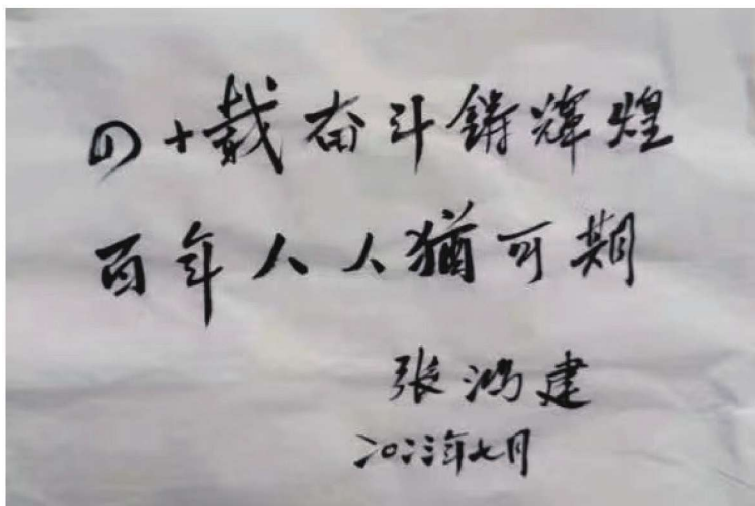 四十载奋斗铸辉煌
百年人人猶可期
张鸿建
二〇二三年七月